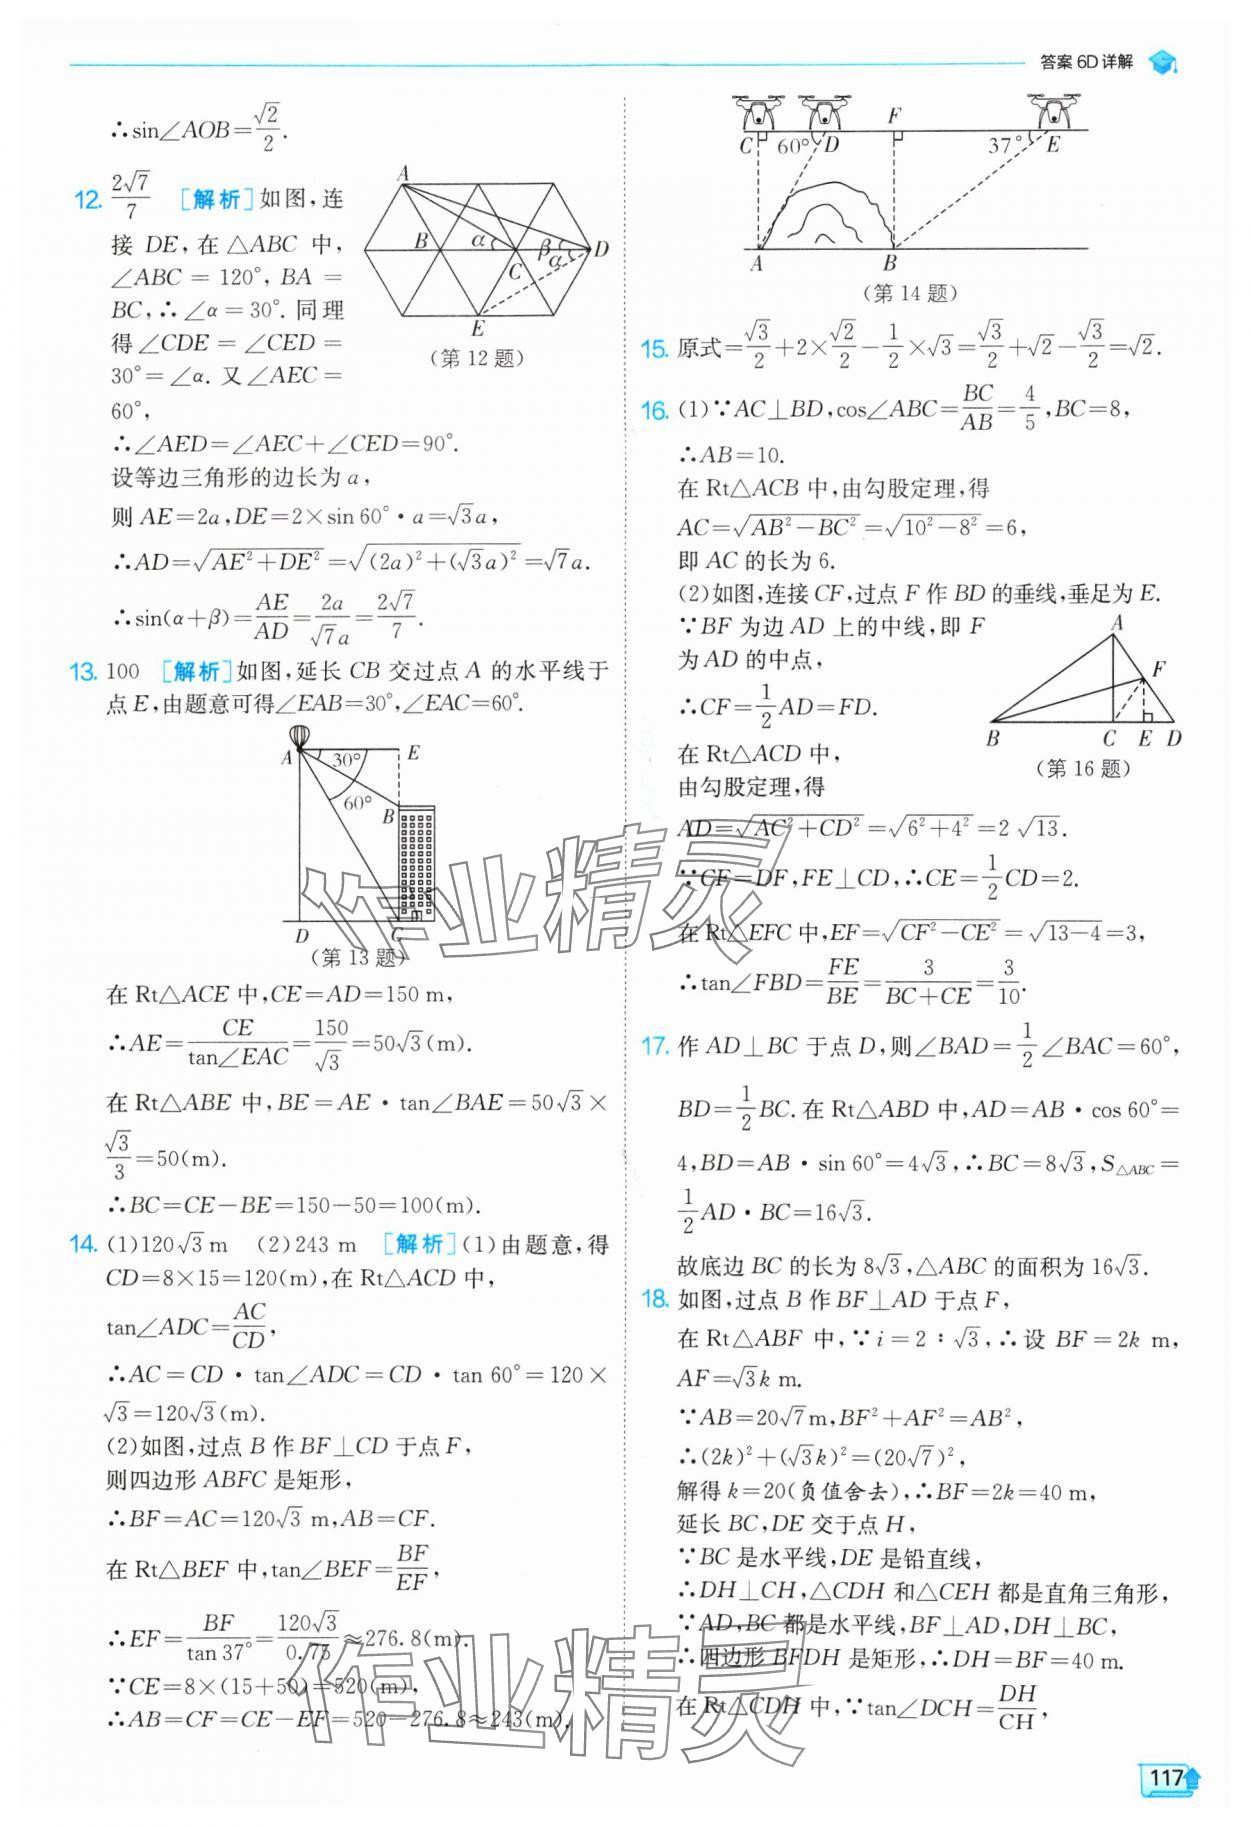 答案 6D 详解
∴sin∠AOB=√2/2.
12. 2√7/7 [解析]如图,连
接 DE,在△ABC 中,
∠ABC=120°,BA=
BC,∴∠α=30°.同理
得∠CDE=∠CED=
30°=∠α.又∠AEC=
60°,
A
B
α
C
β
α
D
E
(第 12 题)
∴∠AED=∠AEC+∠CED=90°.
设等边三角形的边长为 a,
则 AE=2a,DE=2×sin 60°·a=√3a,
∴AD=√(AE²+DE²)=√((2a)²+(√3a)²)=√7a.
∴sin(α+β)=AE/AD=2a/(√7a)=2√7/7.
13. 100 [解析]如图,延长 CB 交过点 A 的水平线于
点 E,由题意可得∠EAB=30°,∠EAC=60°.
A
30°
E
60°
B
D
C
(第 13 题)
在 Rt△ACE 中,CE=AD=150 m,
∴AE=CE/tan∠EAC=150/√3=50√3(m).
在 Rt△ABE 中,BE=AE·tan∠BAE=50√3×
√3/3=50(m).
∴BC=CE-BE=150-50=100(m).
14. (1)120√3 m (2)243 m [解析](1)由题意,得
CD=8×15=120(m),在 Rt△ACD 中,
tan∠ADC=AC/CD,
∴AC=CD·tan∠ADC=CD·tan 60°=120×
√3=120√3(m).
(2)如图,过点 B 作 BF⊥CD 于点 F,
则四边形 ABFC 是矩形,
∴BF=AC=120√3 m,AB=CF.
在 Rt△BEF 中,tan∠BEF=BF/EF,
∴EF=BF/tan 37°=120√3/0.75≈276.8(m).
∵CE=8×(15+50)=520(m),
∴AB=CF=CE-EF=520-276.8≈243(m).
C
60°
D
F
37°
E
A
B
(第 14 题)
15. 原式=√3/2+2×√2/2-1/2×√3=√3/2+√2-√3/2=√2.
16. (1)∵AC⊥BD,cos∠ABC=BC/AB=4/5,BC=8,
∴AB=10.
在 Rt△ACB 中,由勾股定理,得
AC=√(AB²-BC²)=√(10²-8²)=6,
即 AC 的长为 6.
(2)如图,连接 CF,过点 F 作 BD 的垂线,垂足为 E.
∵BF 为边 AD 上的中线,即 F
为 AD 的中点,
∴CF=1/2AD=FD.
在 Rt△ACD 中,
由勾股定理,得
A
F
B
C
E
D
(第 16 题)
AD=√(AC²+CD²)=√(6²+4²)=2√13.
∵CF=DF,FE⊥CD,∴CE=1/2CD=2.
在 Rt△EFC 中,EF=√(CF²-CE²)=√(13-4)=3,
∴tan∠FBD=FE/BE=3/(BC+CE)=3/10.
17. 作 AD⊥BC 于点 D,则∠BAD=1/2∠BAC=60°,
BD=1/2BC.在 Rt△ABD 中,AD=AB·cos 60°=
4,BD=AB·sin 60°=4√3,∴BC=8√3,S△ABC=
1/2AD·BC=16√3.
故底边 BC 的长为 8√3,△ABC 的面积为 16√3.
18. 如图,过点 B 作 BF⊥AD 于点 F,
在 Rt△ABF 中,∵i=2∶√3,∴设 BF=2k m,
AF=√3k m.
∵AB=20√7m,BF²+AF²=AB²,
∴(2k)²+(√3k)²=(20√7)²,
解得 k=20(负值舍去),∴BF=2k=40 m,
延长 BC,DE 交于点 H,
∵BC 是水平线,DE 是铅直线,
∴DH⊥CH,△CDH 和△CEH 都是直角三角形,
∵AD,BC 都是水平线,BF⊥AD,DH⊥BC,
∴四边形 BFDH 是矩形,∴DH=BF=40 m.
在 Rt△CDH 中,∵tan∠DCH=DH/CH,
作业精灵
作业精灵
117